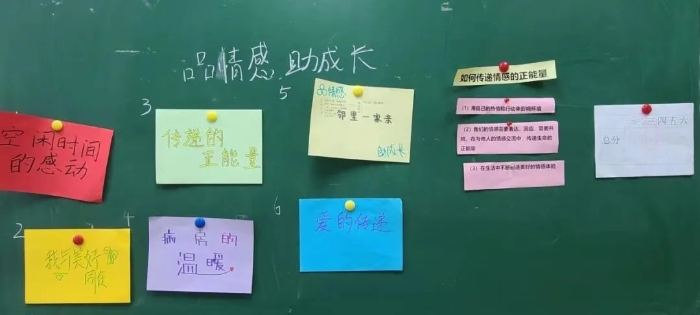 品情感 助成长
空闲时间
的感动
2
我与美好
同在
3
传递的
正能量
4
病房的
温暖
5
品情感
邻里一家亲
助成长
6
爱的传递
如何传递情感的正能量
(1)用自己的热情和行动来影响环境
(2)我们的情感需要表达、回应，需要共
鸣。在与他人的情感交流中，传递生命的
正能量
(3)在生活中不断创造美好的情感体验
一二三四五六
总分